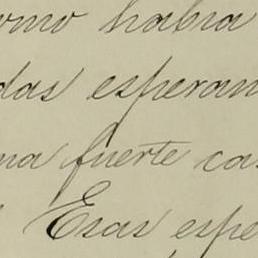 omo habia
das esperan
na fuerte cas
Esas espe